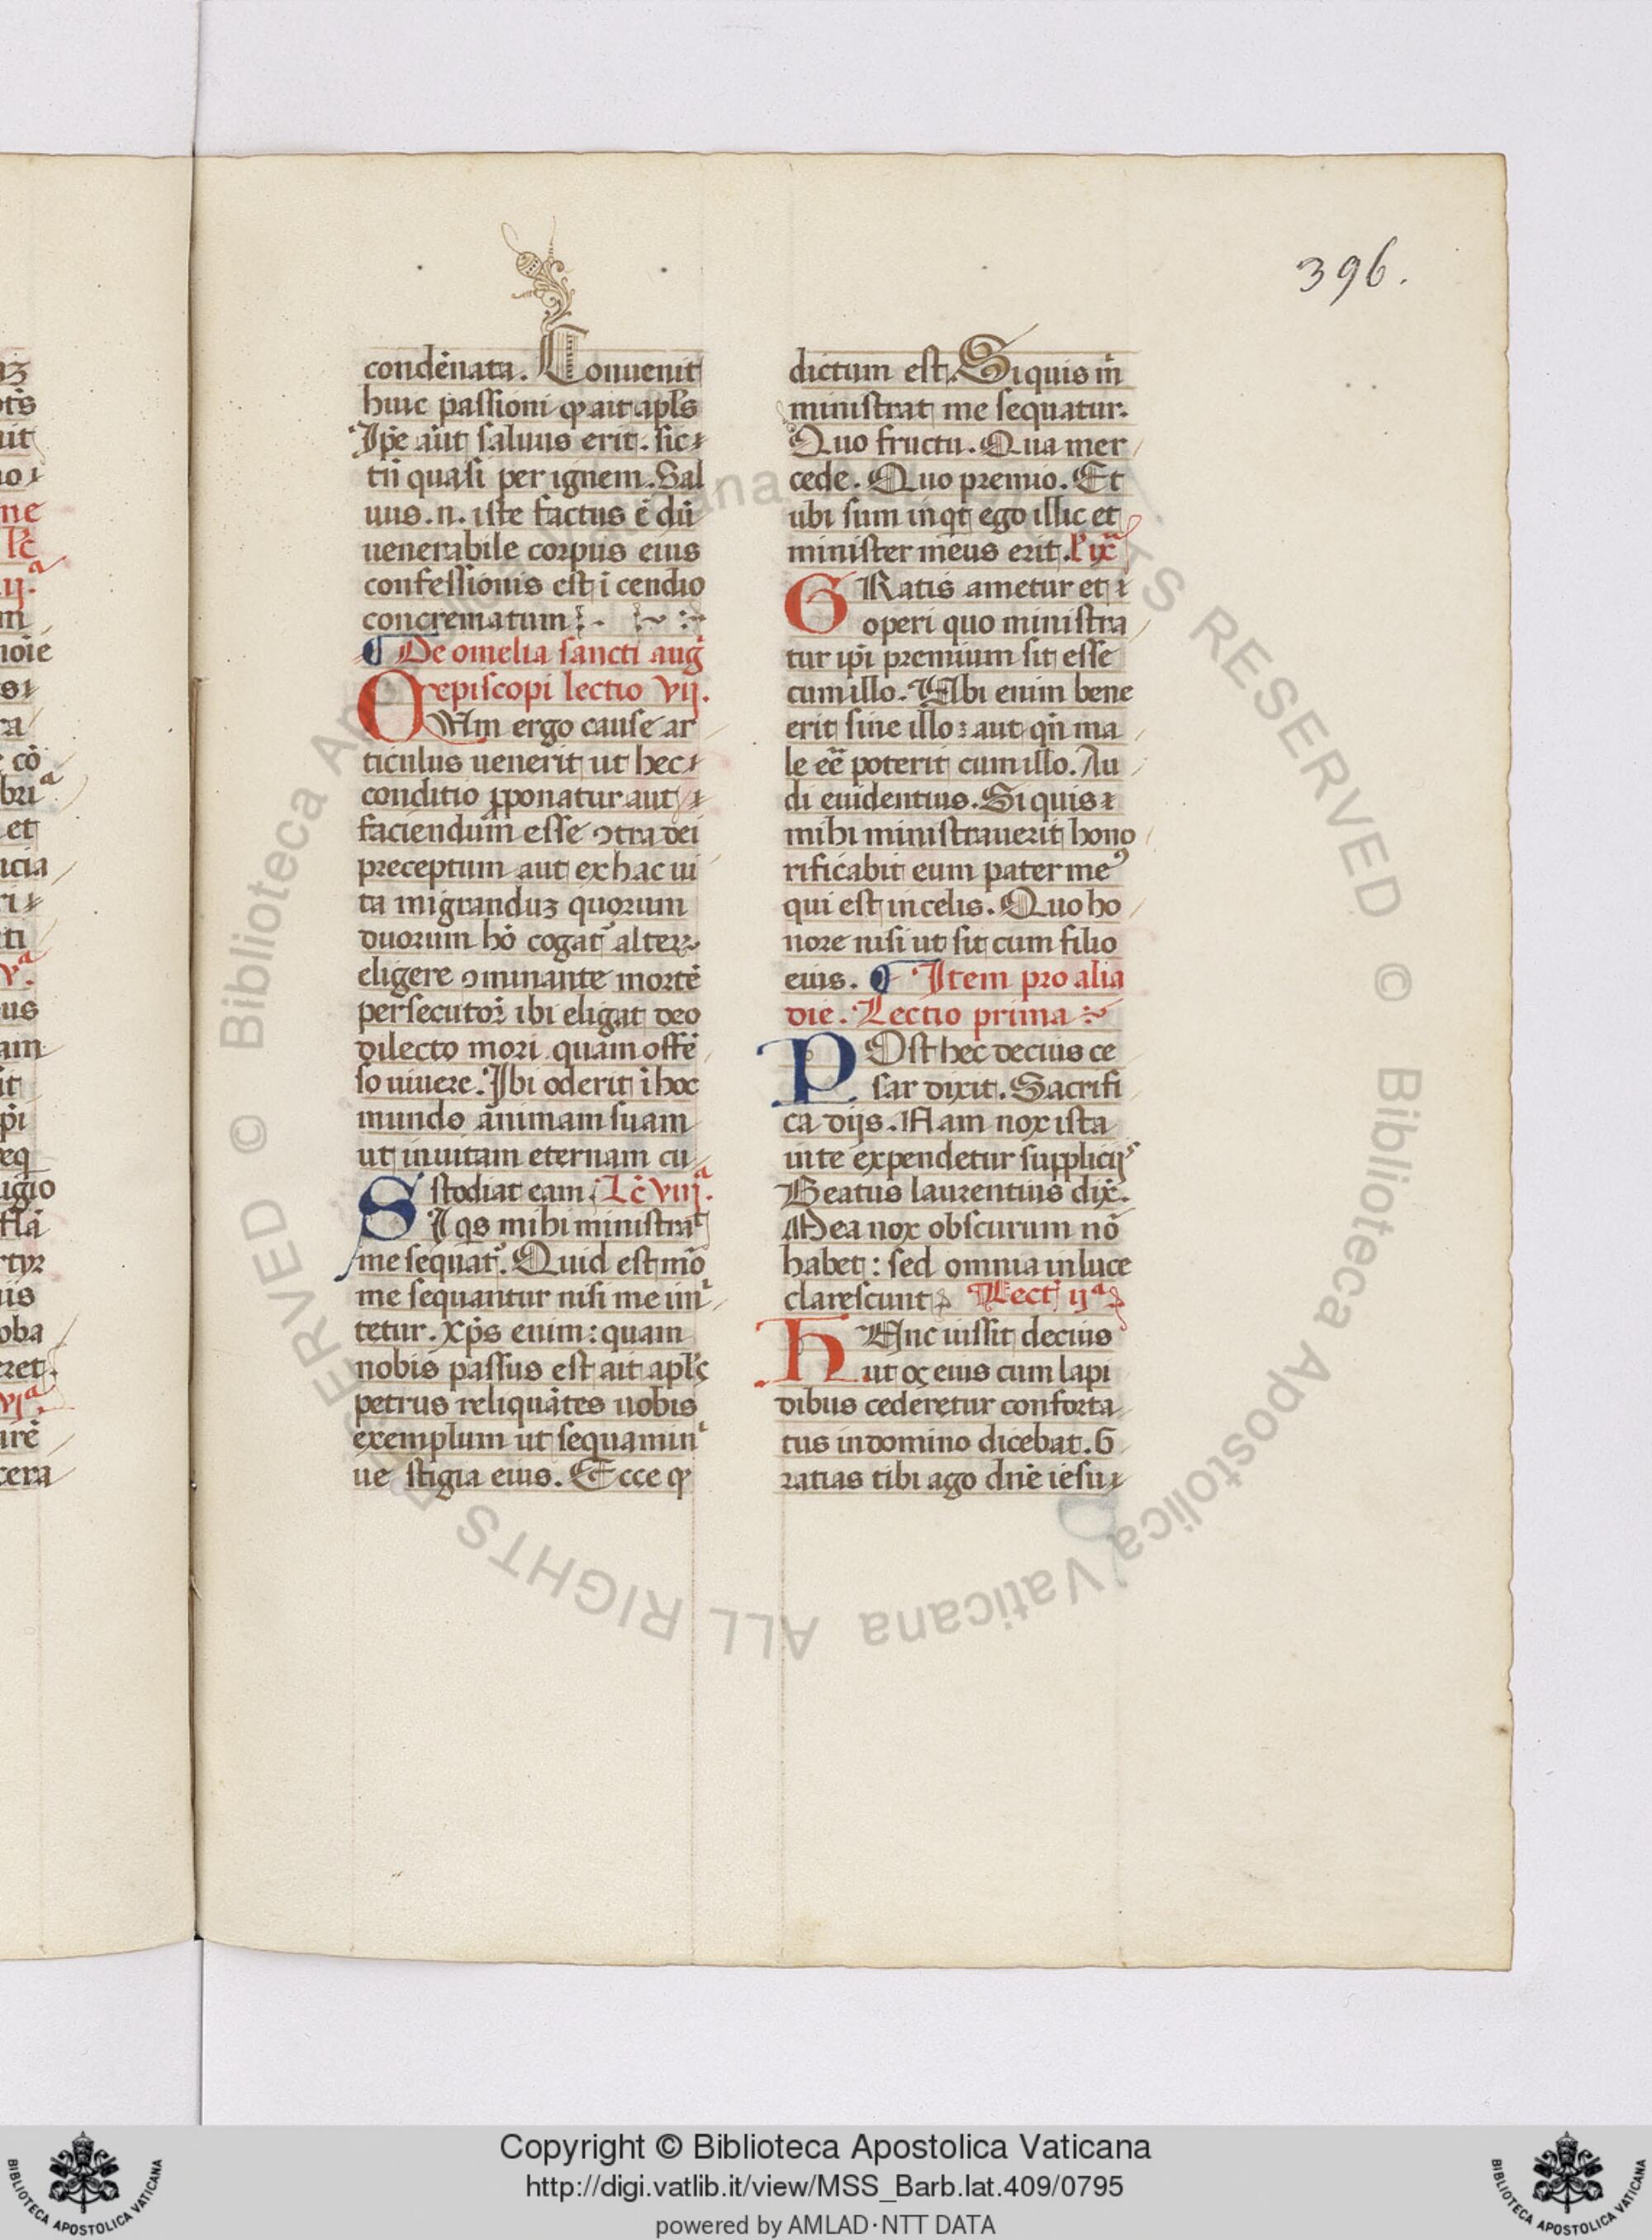 396.
condēnata. Conuenit
huic passioni ꝙ ait apl's
Ip̄e aūt saluus erit. sic
tn̄ quasi per ignem. Sal
uus .n. iste factus ē dū
uenerabile corpus eius
confessionis est i cendio
concrematum
¶ De omelia sancti auḡ
episcopi lectio vij.
QVum ergo cause ar
ticulus uenerit ut hec
conditio ꝓponatur aut
faciendum esse ꝯtra dei
preceptum aut ex hac ui
ta migranduꝫ quorum
duorum hō cogat᷑ alteꝝ
eligere ꝯminante mortē
persecutor̄ ibi eligat deo
dilecto mori quam offē
so uiuere. Ibi oderit ī hoc
mundo animam suam
ut in uitam eternam cu
stodiat eam. Lc̄ viijª.
SI qs mihi ministrat
me sequat᷑. Quid est mō
me sequantur nisi me imi
tetur. Xp̄s enim: quam
nobis passus est ait apl's
petrus reliquātes uobis
exemplum ut sequamini
ue stigia eius. Ecce ꝙ
dictum est. Si quis m̄
ministrat me sequatur.
Quo fructu. Qua mer
cede. Quo premio. Et
ubi sum inqt ego illic et
minister meus erit. l' ixª
GRatis ametur et
operi quo ministra
tur ip̄i premium sit esse
cum illo. Vbi enim bene
erit sine illo: aut qn̄ ma
le eē poterit cum illo. Au
di euidentius. Si quis
mihi ministrauerit hono
rificabit eum pater meꝰ
qui est in celis. Quo ho
nore nisi ut sit cum filio
eius. ¶ Item pro alia
die. Lectio prima
POst hec decius ce
sar dixit. Sacrifi
ca dijs. Nam nox ista
in te expendetur supplicijs
Beatus laurentius dix̄.
Mea nox obscurum nō
habet: sed omnia in luce
clarescunt. Lect' ijª
TVnc iussit decius
ut os eius cum lapi
dibus cederetur conforta
tus in domino dicebat. G
ratias tibi ago dn̄e iesu
Copyright © Biblioteca Apostolica Vaticana
http://digi.vatlib.it/view/MSS_Barb.lat.409/0795
powered by AMLAD·NTT DATA
BIBLIOTECA APOSTOLICA VATICANA
BIBLIOTECA APOSTOLICA VATICANA
© Biblioteca Apostolica Vaticana ALL RIGHTS RESERVED
© Biblioteca Apostolica Vaticana ALL RIGHTS RESERVED